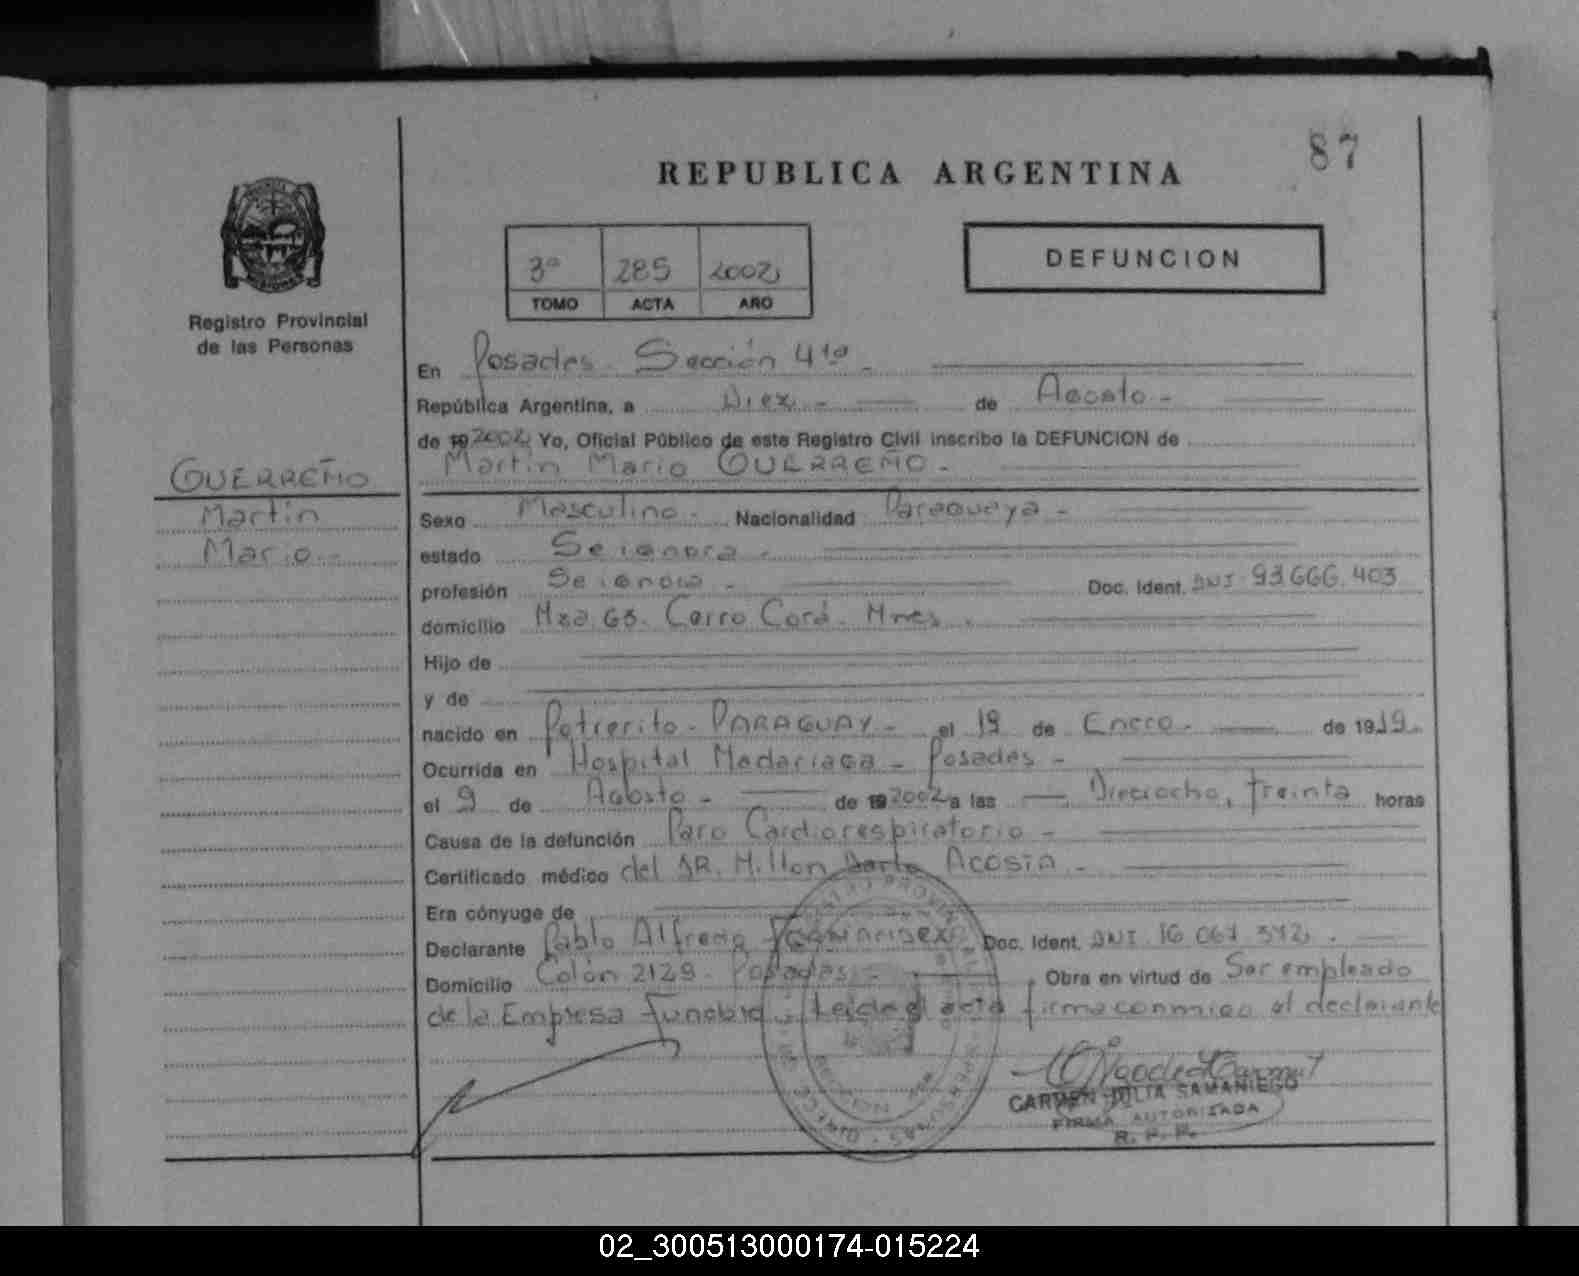 87
REPUBLICA ARGENTINA
3º 285 2002
TOMO ACTA AÑO
DEFUNCION
Registro Provincial
de las Personas
En Posadas - Sección 4ta -
República Argentina, a Diez - de Agosto -
de 19 2002 Yo, Oficial Público de este Registro Civil inscribo la DEFUNCION de
Martin Mario GUERREÑO -
GUERREÑO
Martin
Mario -
Sexo Masculino - Nacionalidad Paraguaya -
estado Se ignora -
profesión Se ignora - Doc. Ident. DNI 93.666.403
domicilio Mza 63. Cerro Corá. Mnes.
Hijo de
y de
nacido en Potrerito - PARAGUAY - el 19 de Enero - de 1919.
Ocurrida en Hospital Madariaga - Posadas -
el 9 de Agosto - de 19 2002 a las Dieciocho, treinta horas
Causa de la defunción Paro Cardiorespiratorio -
Certificado médico del DR. Milton Acosta -
Era cónyuge de
Declarante Pablo Alfredo Doc. Ident. DNI 16 067 372.
Domicilio Colón 2129 - Posadas - Obra en virtud de Ser empleado
de la Empresa Funebre - Leida el acta firma conmigo el declarante
CARMEN JULIA SAMANIEGO
FIRMA AUTORIZADA
R. P. P.
02_300513000174-015224